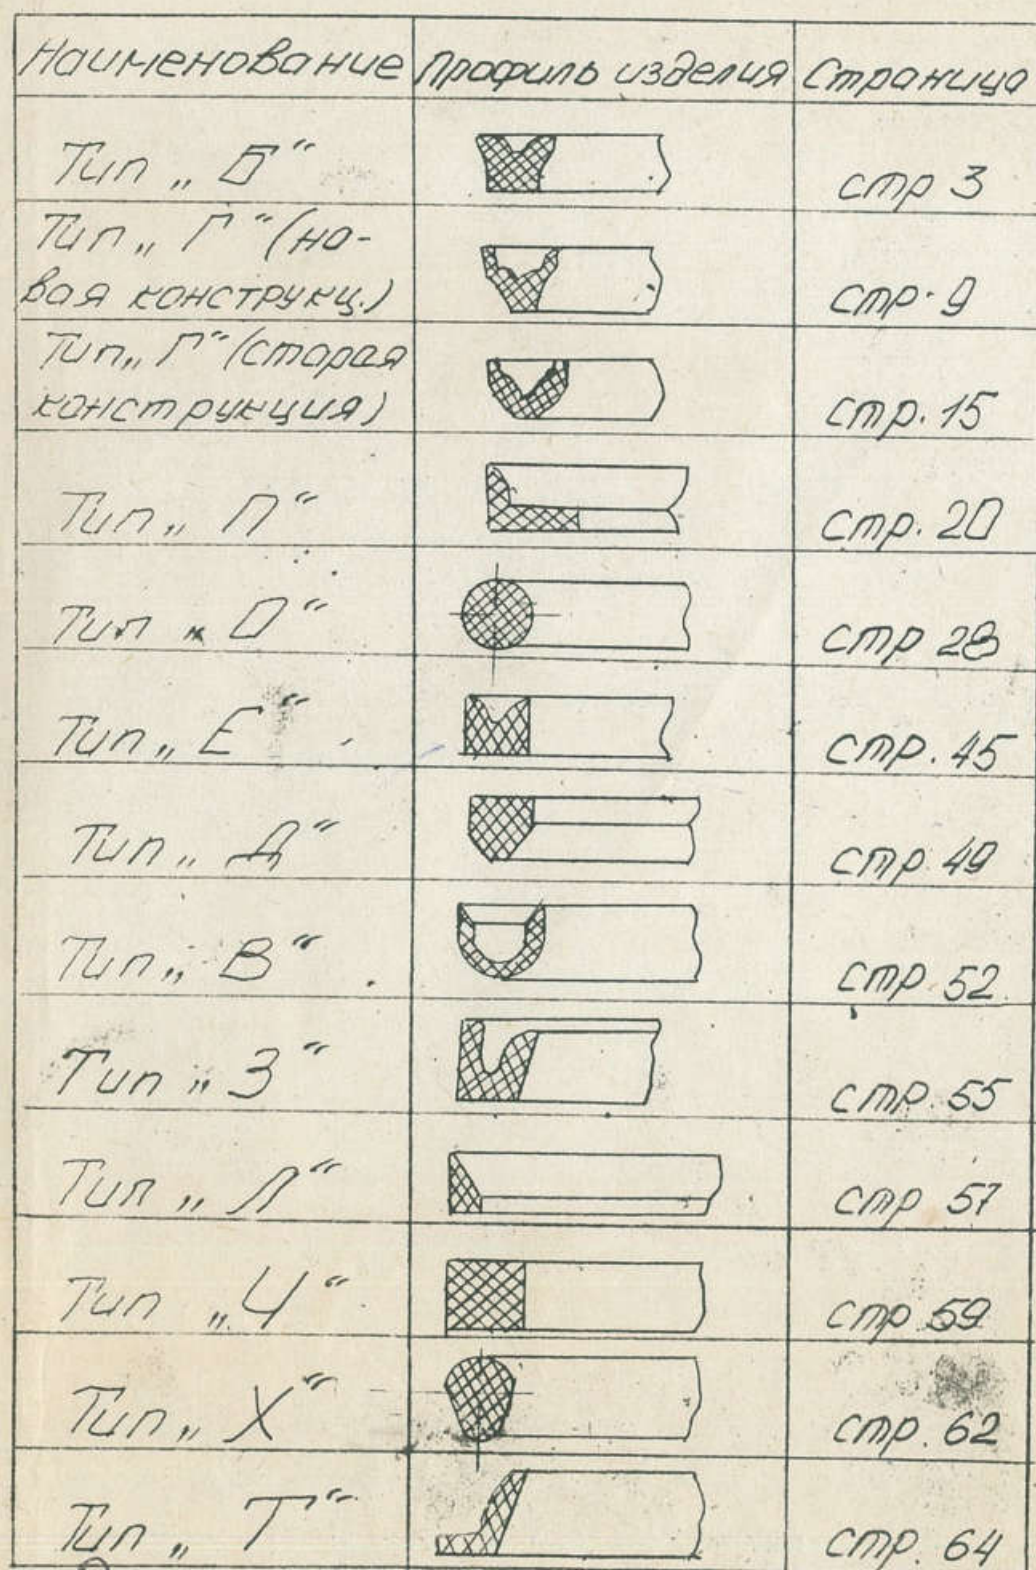 Наименование Профиль изделия Страница
Тип „Б“ стр 3
Тип „Г“ (но-
вая конструкц.) стр. 9
Тип „Г“ (старая
конструкция) стр. 15
Тип „П“ стр. 20
Тип „О“ стр 28
Тип „Е“ стр. 45
Тип „Д“ стр. 49
Тип „В“ стр. 52
Тип „З“ стр. 55
Тип „Л“ стр 57
Тип „Ч“ стр 59
Тип „Х“ стр. 62
Тип „Т“ стр. 64